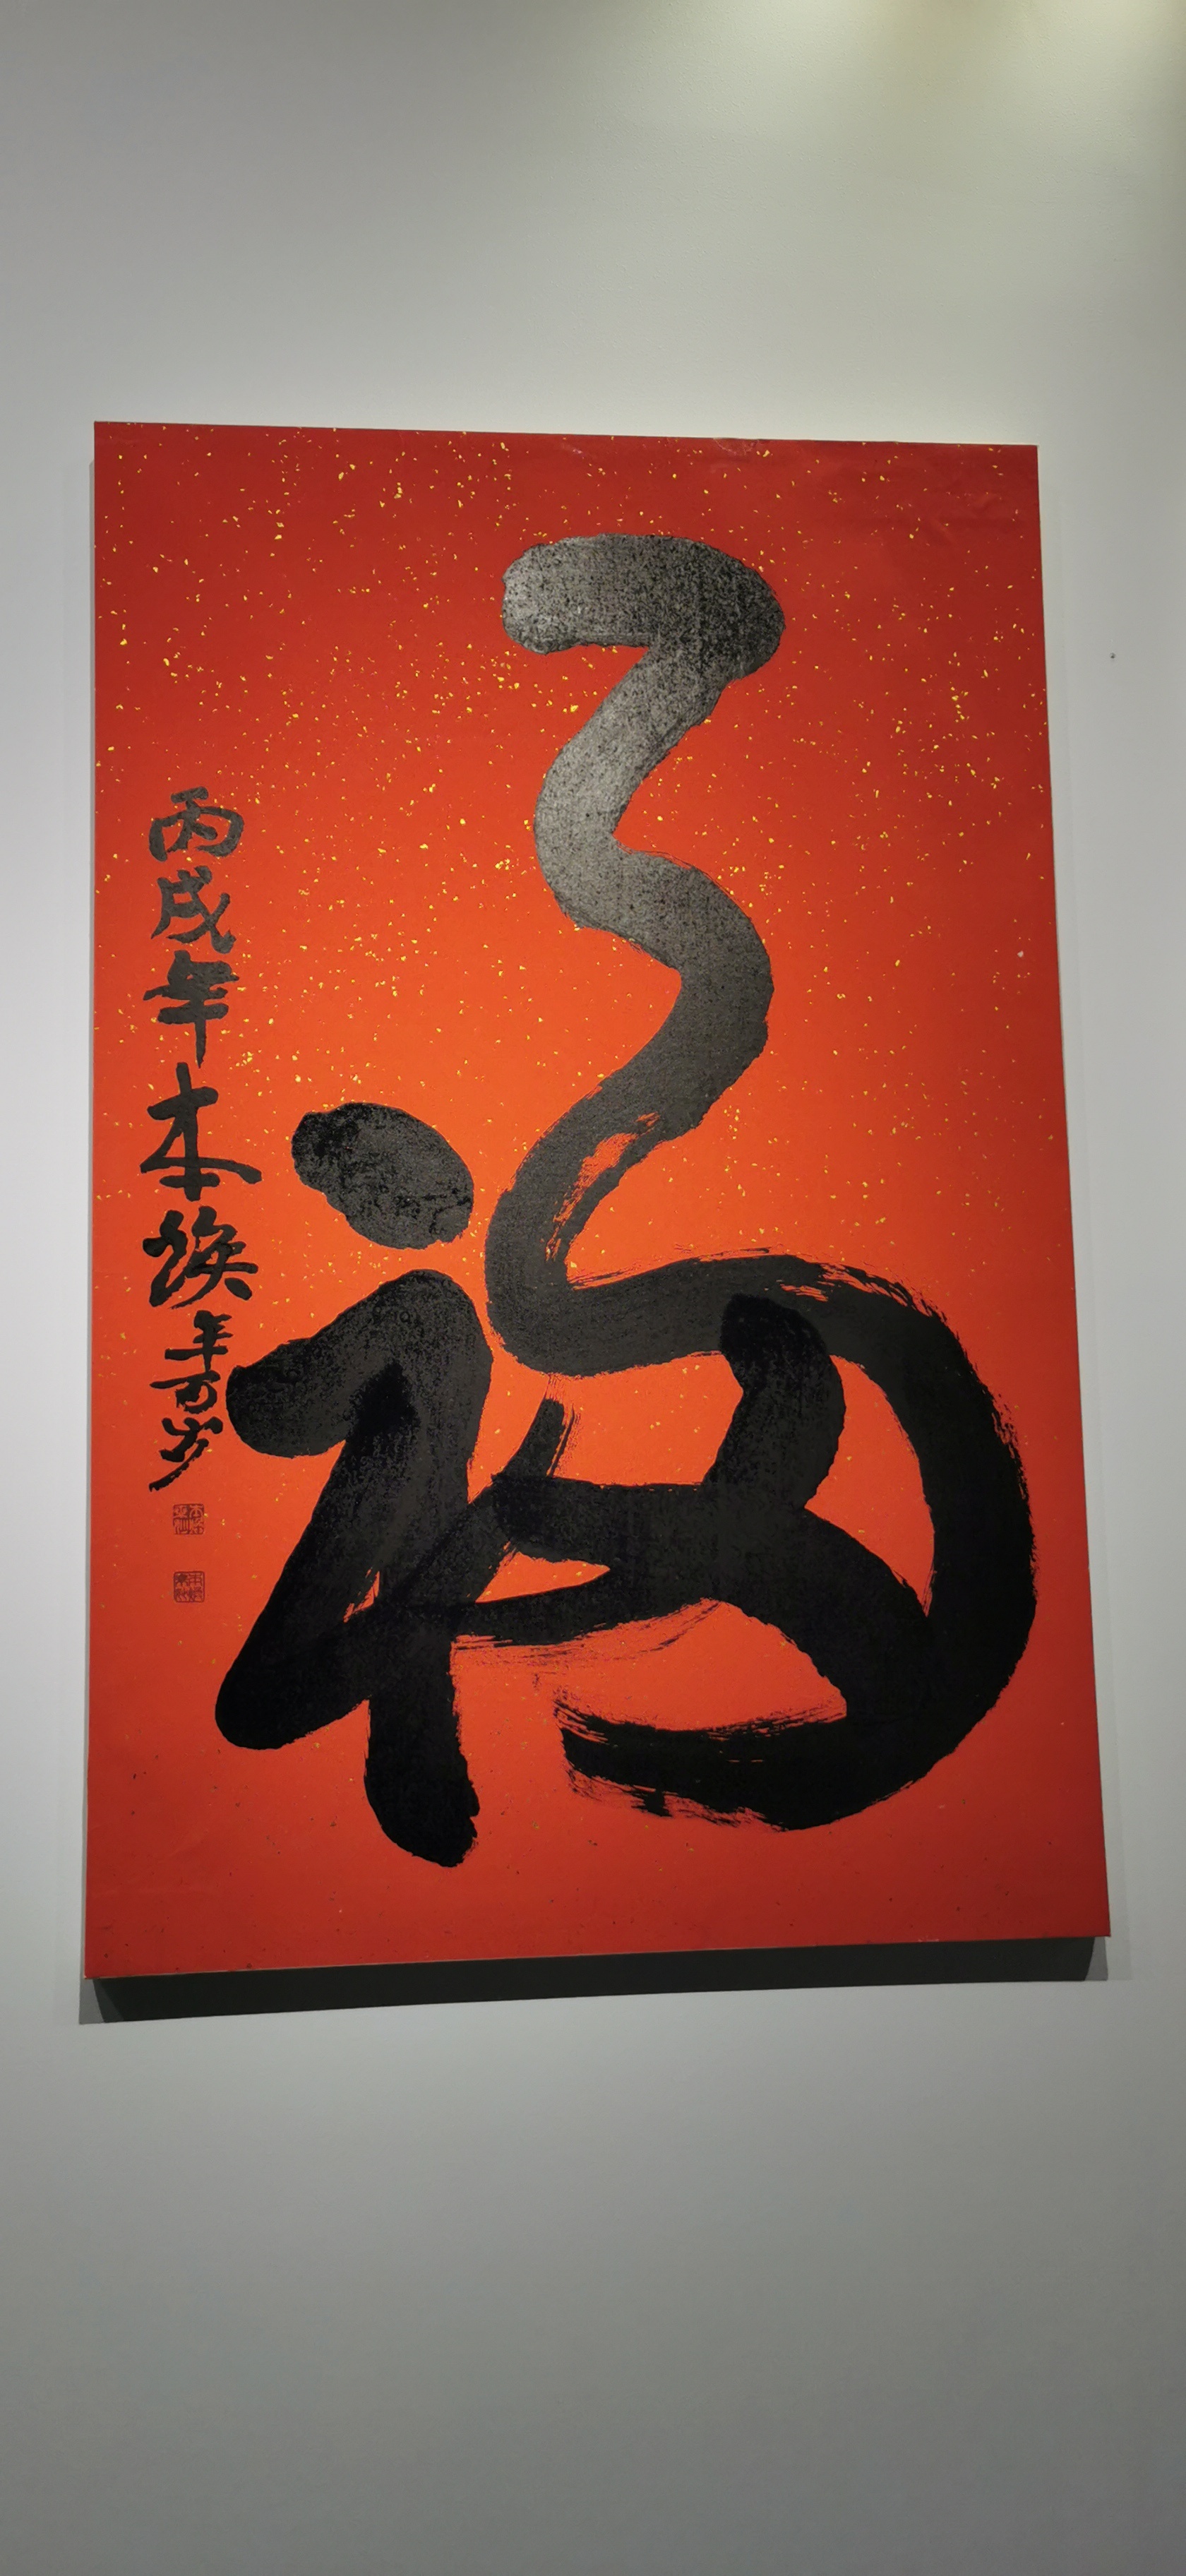 福
丙戌年本焕年百岁